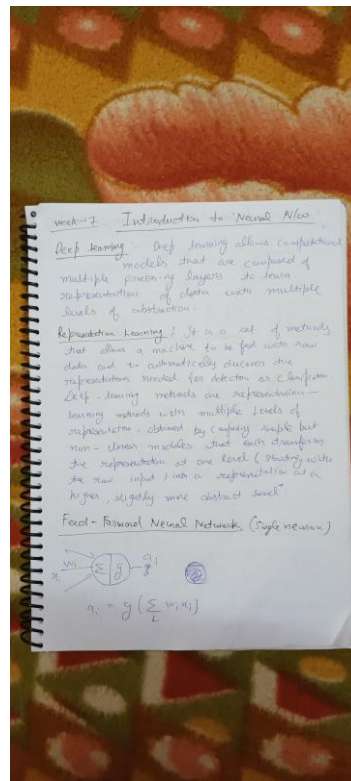 week-7 Introduction to Neural N/w
Deep learning - Deep learning allows computational
models that are composed of
multiple processing layers to learn
representation of data with multiple
levels of abstraction.
Representation Learning: It is a set of methods
that allows a machine to be fed with raw
data and to automatically discover the
representation needed for detection or
Deep-learning methods are representation-
learning methods with multiple levels of
representation, obtained by composing simple but
non-linear modules that each transform
the representation at one level (starting with
the raw input) into a representation at a
higher, slightly more abstract level"
Feed-Forward Neural Network (Single neuron)
Σ g